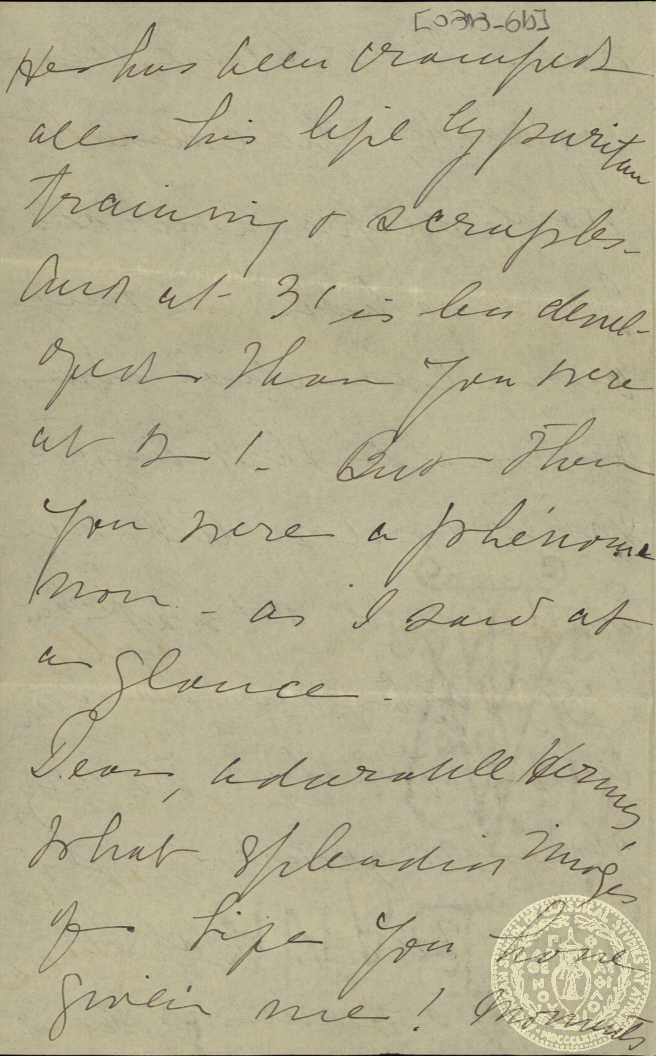 [0313-6b]
He has been cramped
all his life by puritan
training & scruples -
And at 31 is less devel-
oped than you were
at 12! - But then
you were a phénome
non - as I said at
a glance -
Dear, adorable Hermes,
what splendid images
of life you have
given me! Moments